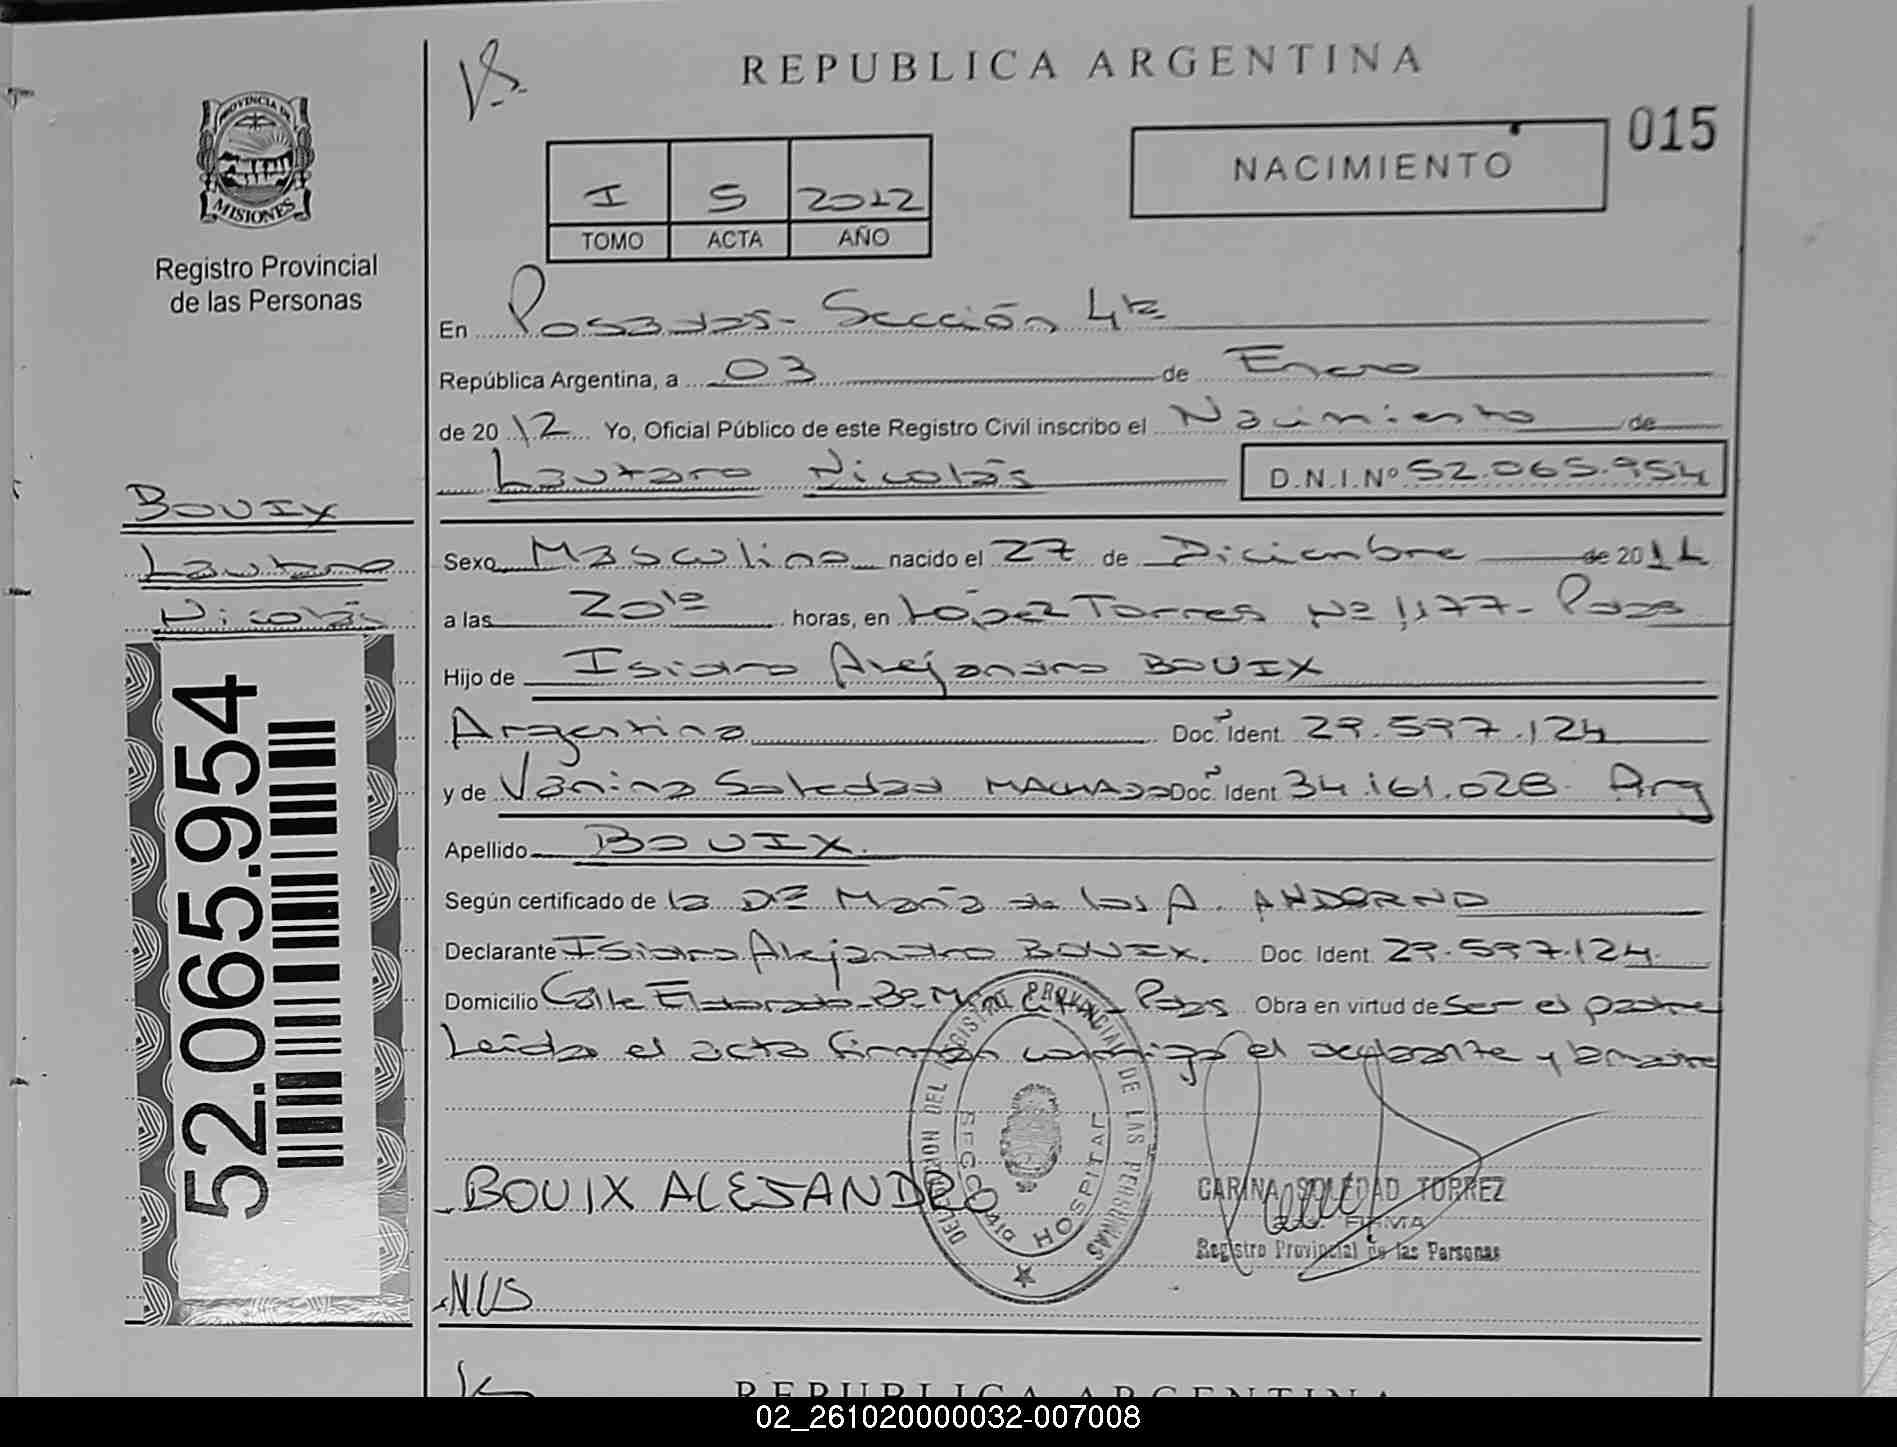 REPUBLICA ARGENTINA
015
PROVINCIA DE
MISIONES
Registro Provincial
de las Personas
I 5 2012
TOMO ACTA AÑO
NACIMIENTO
En Posadas - Sección 4ta
República Argentina, a 03 de Enero
de 2012 Yo, Oficial Público de este Registro Civil inscribo el Nacimiento de
Lautaro Nicolás D.N.I.Nº 52.065.954
BOUIX
Lautaro
Nicolás
52.065.954
Sexo Masculino nacido el 27 de Diciembre de 2011
a las 20 10 horas, en López Torres Nº 1177 - Pdas
Hijo de Isidro Alejandro BOUIX
Argentino Doc. Ident. 29.597.124
y de Vanina Soledad MACHADO Doc. Ident. 34.161.028 Arg
Apellido BOUIX
Según certificado de la Dra María de los A. ANDORNO
Declarante Isidro Alejandro BOUIX. Doc. Ident. 29.597.124
Domicilio Calle Eldorado Bº Pdas Obra en virtud de ser el padre
Leída el acta firman conmigo el declarante y la madre
DELEGACION DEL REGISTRO PROVINCIAL DE LAS PERSONAS
HOSPITAL
BOUIX ALEJANDRO
CARINA SOLEDAD TORREZ
FIRMA
Registro Provincial de las Personas
REPUBLICA ARGENTINA
02_261020000032-007008